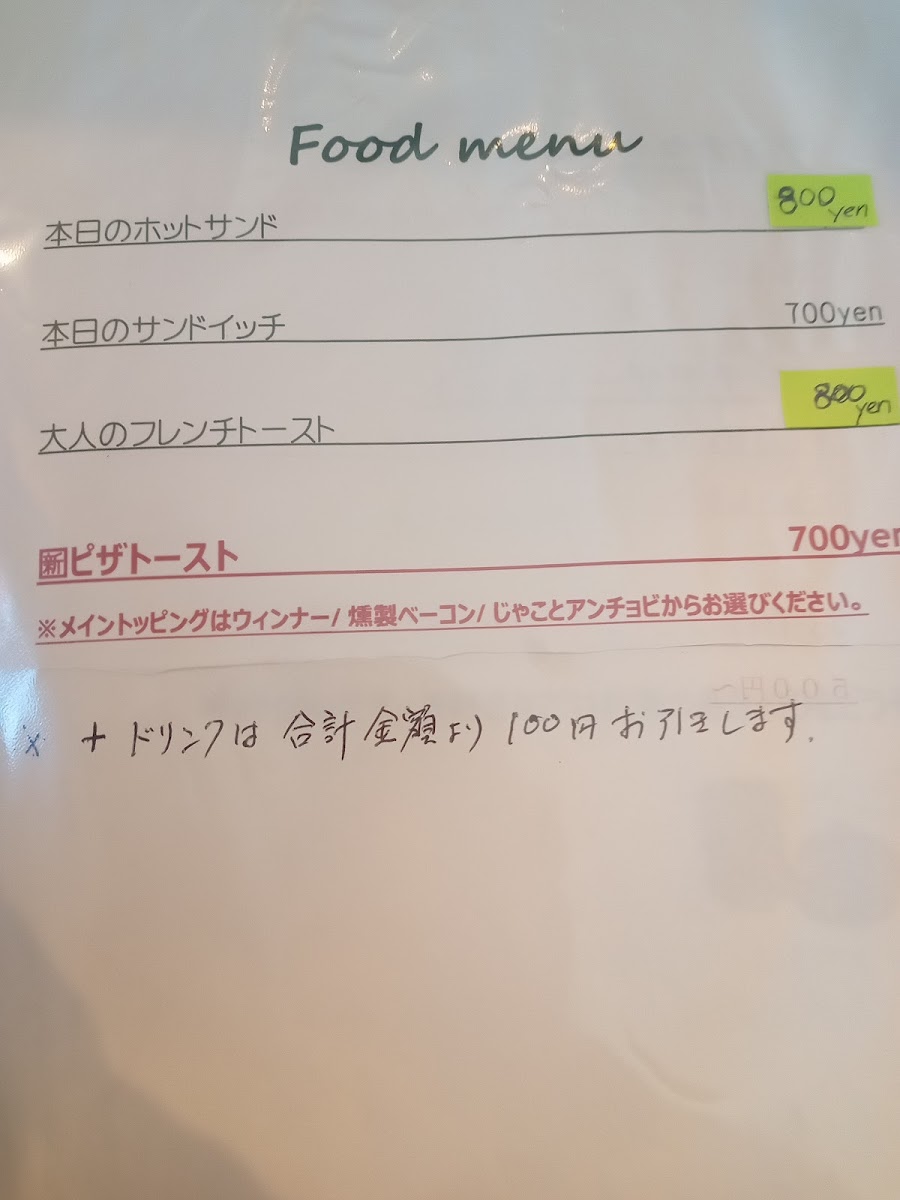 Food menu
本日のホットサンド 800yen
本日のサンドイッチ 700yen
大人のフレンチトースト 800yen
新ピザトースト 700yen
※メイントッピングはウィンナー/ 燻製ベーコン/ じゃことアンチョビからお選びください。
※ + ドリンクは 合計金額より 100円お引きします.
500円〜